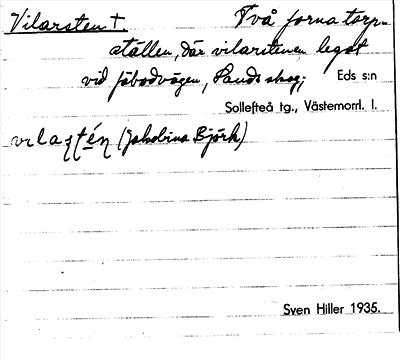 Vilarsten † Två forna torp-
ställen, där vilarstenen legat
vid fäbodvägen, Sands skog; Eds s:n
Sollefteå tg., Västernorrl. l.
(Jakobina Björk)
Sven Hiller 1935.